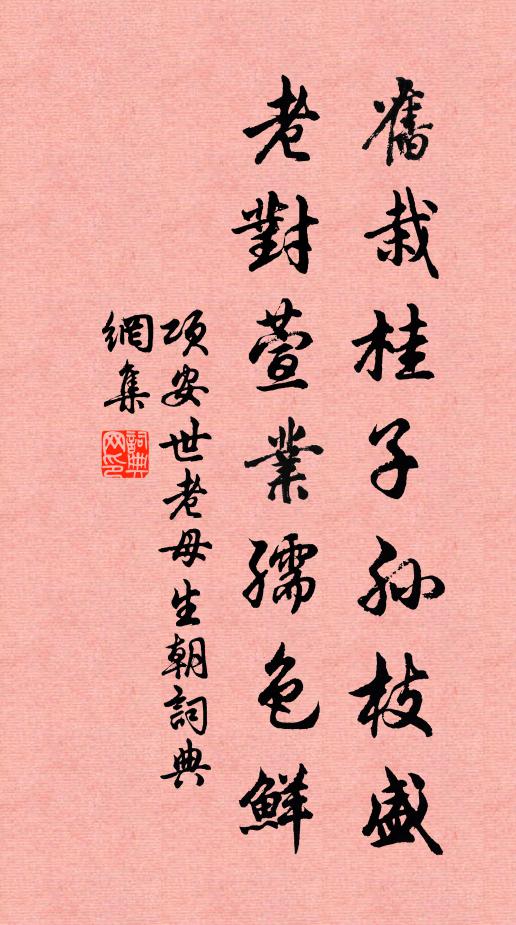 舊栽桂子孫枝盛
老對萱業孺色鮮
項安世老母生朝詞典
網集
詞典
网印